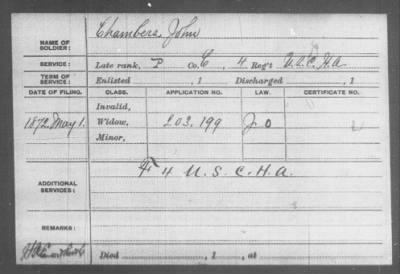 NAME OF SOLDIER: Chambers, John
SERVICE: Late rank, P Co. C, 4 Reg't U.S.C.H.A.
TERM OF SERVICE: Enlisted , 1 Discharged , 1
DATE OF FILING. CLASS. APPLICATION NO. LAW. CERTIFICATE NO.
Invalid,
1872 May 1. Widow, 203.199
Minor,
ADDITIONAL SERVICES: F 4 U.S.C.H.A.
REMARKS:
Died , 1 , at